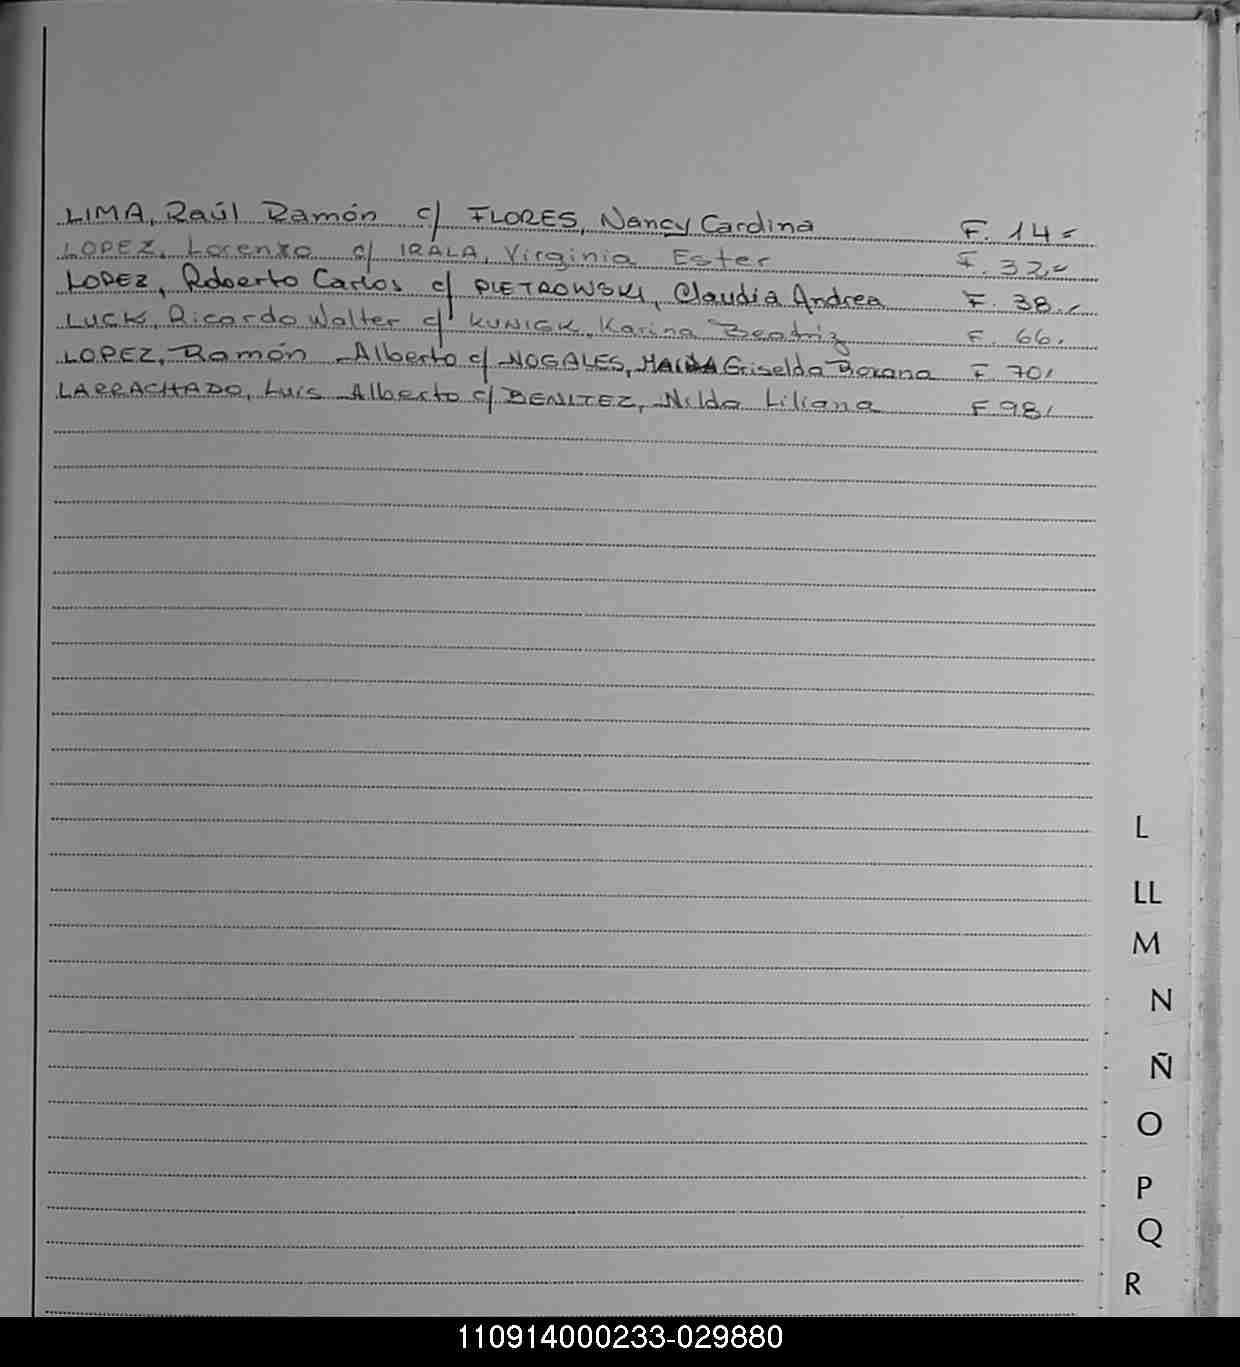 LIMA, Raúl Ramón c/ FLORES, Nancy Cardina F. 14.-
LOPEZ, Lorenzo c/ IRALA, Virginia Ester F. 32.-
LOPEZ, Roberto Carlos c/ PIETROWSKI, Claudia Andrea F. 38.-
LUCK, Ricardo Walter c/ KUNIGK, Karina Beatriz F. 66.
LOPEZ, Ramón Alberto c/ NOGALES, Griselda Roxana F. 70.
LARRACHADO, Luis Alberto c/ BENITEZ, Nilda Liliana F 98.
L
LL
M
N
Ñ
O
P
Q
R
110914000233-029880